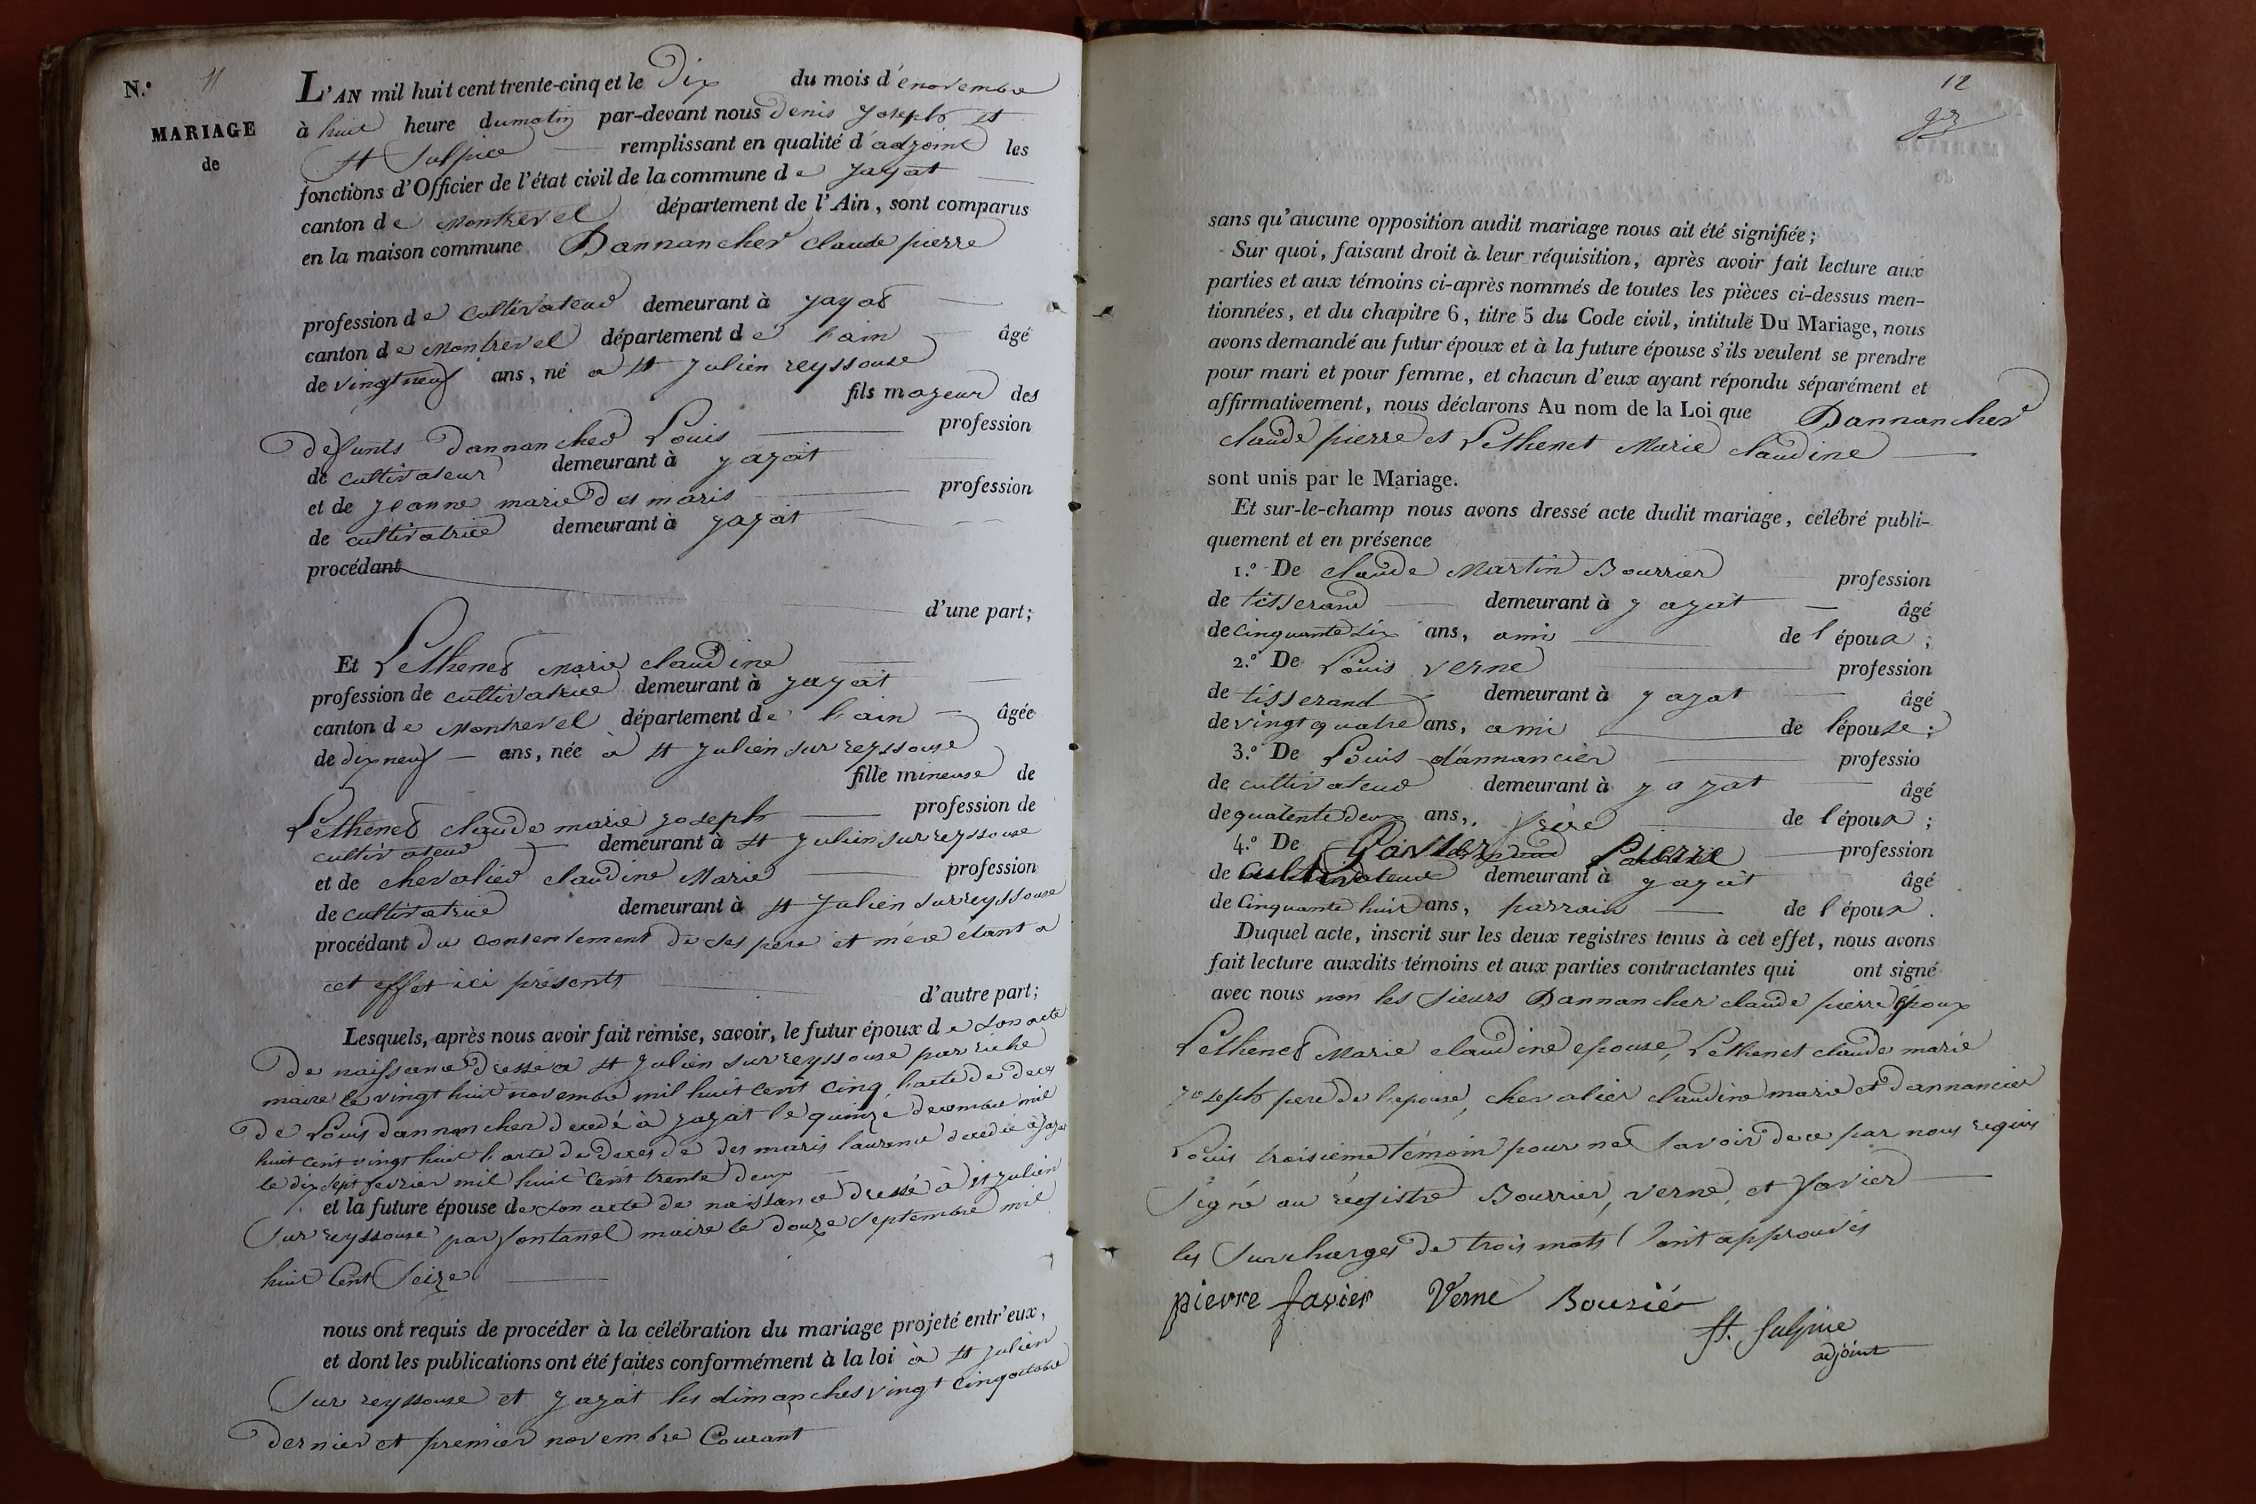 N.° 11
MARIAGE
de
L'AN mil huit cent trente-cinq et le Dix du mois d'enovembre
à huit heure dumatin par-devant nous denis Joseph et
St Sulpice remplissant en qualité d'adjoint les
fonctions d'Officier de l'état civil de la commune de Jayat
canton de Montrevel département de l'Ain, sont comparus
en la maison commune Dannancher claude pierre
profession de cultivateur demeurant à Jayat
canton de Montrevel département de l'ain âgé
de vingt neuf ans, né a St Julien reyssouse
fils majeur des
defunts Dannancher Louis profession
de cultivateur demeurant à Jayat
et de Jeanne marie des maris profession
de cultivatrice demeurant à Jayat
procédant
d'une part;
Et Lethenet Marie claudine
profession de cultivatrice demeurant à Jayat
canton de Montrevel département de l'ain âgée
de dixneuf ans, née à St Julien sur reyssouse
fille mineuse de
Lethenet claude marie joseph profession de
cultivateur demeurant à St Julien sur reyssouse
et de chevalier claudine Marie profession
de cultivatrice demeurant à St Julien sur reyssouse
procédant du consentement de ses pere et mére etant a
cet effet ici présents
d'autre part;
Lesquels, après nous avoir fait remise, savoir, le futur époux de son acte
de naissance dressé a St Julien sur reyssouse par riche
maire le vingt huit novembre mil huit cent cinq l'acte de deces
de Louis dannancher decedé à Jayat le quinze decembre mil
huit cent vingt huit l'acte de deces de des maris laurence decedée à Jayat
le dix sept fevrier mil huit cent trente deux
et la future épouse de son acte de naissance dressé à St Julien
sur reyssouse par fontanel maire le douze septembre mil
huit cent seize
nous ont requis de procéder à la célébration du mariage projeté entr'eux,
et dont les publications ont été faites conformément à la loi à St Julien
sur reyssouse et Jayat les dimanches vingt cinq octobre
dernier et premier novembre Courant
12
sans qu'aucune opposition audit mariage nous ait été signifiée;
Sur quoi, faisant droit à leur réquisition, après avoir fait lecture aux
parties et aux témoins ci-après nommés de toutes les pièces ci-dessus men-
tionnées, et du chapitre 6, titre 5 du Code civil, intitulé Du Mariage, nous
avons demandé au futur époux et à la future épouse s'ils veulent se prendre
pour mari et pour femme, et chacun d'eux ayant répondu séparément et
affirmativement, nous déclarons Au nom de la Loi que Dannancher
claude pierre et Lethenet Marie claudine
sont unis par le Mariage.
Et sur-le-champ nous avons dressé acte dudit mariage, célébré publi-
quement et en présence
1.° De claude Martin Bourrier profession
de tisserand demeurant à Jayat âgé
de cinquante six ans, ami de l'époux;
2.° De Louis Verne profession
de tisserand demeurant à Jayat âgé
de vingt quatre ans, ami de l'épouse;
3.° De Louis dannancier professio
de cultivateur demeurant à Jayat âgé
de quatente deux ans, frère de l'époux;
4.° De favier Pierre profession
de Cultivateur demeurant à Jayat âgé
de Cinquante huit ans, parrain de l'époux.
Duquel acte, inscrit sur les deux registres tenus à cet effet, nous avons
fait lecture auxdits témoins et aux parties contractantes qui ont signé
avec nous non les sieurs Dannancher claude pierre époux
Lethenet Marie claudine epouse, Lethenet claude marie
joseph pere de l'epouse, chevalier claudine marie et dannancier
Louis troisième témoin pour ne savoir de ce par nous requis
signé au régistre Bourrier, verne, et favier
les surcharges de trois mots sont approuvés
pierre favier Verne Bourié
St. Sulpice
adjoint